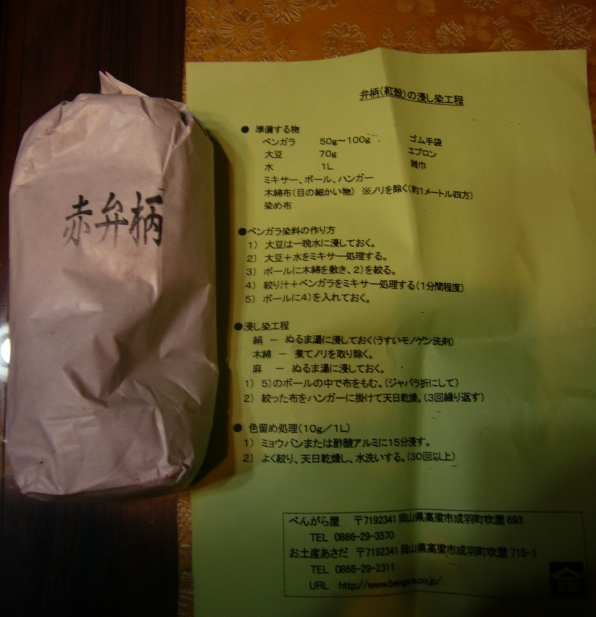 赤弁柄
弁柄(紅殻)の浸し染工程
● 準備する物
ベンガラ 50g~100g ゴム手袋
大豆 70g エプロン
水 1L 雑巾
ミキサー、ボール、ハンガー
木綿布(目の細かい物) ※ノリを除く(約1メートル四方)
染め布
●ベンガラ染料の作り方
1) 大豆は一晩水に浸しておく。
2) 大豆+水をミキサー処理する。
3) ボールに木綿を敷き、2)を絞る。
4) 絞り汁+ベンガラをミキサー処理する(1分間程度)
5) ボールに4)を入れておく。
●浸し染工程
絹 - ぬるま湯に浸しておく(うすいモノゲン洗剤)
木綿 - 煮てノリを取り除く。
麻 - ぬるま湯に浸しておく。
1) 5)のボールの中で布をもむ。(ジャバラ折にして)
2) 絞った布をハンガーに掛けて天日乾燥。(3回繰り返す)
● 色留め処理(10g/1L)
1) ミョウバンまたは酢酸アルミに15分浸す。
2) よく絞り、天日乾燥し、水洗いする。(30回以上)
べんがら屋 〒7192341 岡山県高梁市成羽町吹屋 693
TEL 0866-29-3570
お土産あさだ 〒7192341 岡山県高梁市成羽町吹屋 715-1
TEL 0866-29-2311
URL